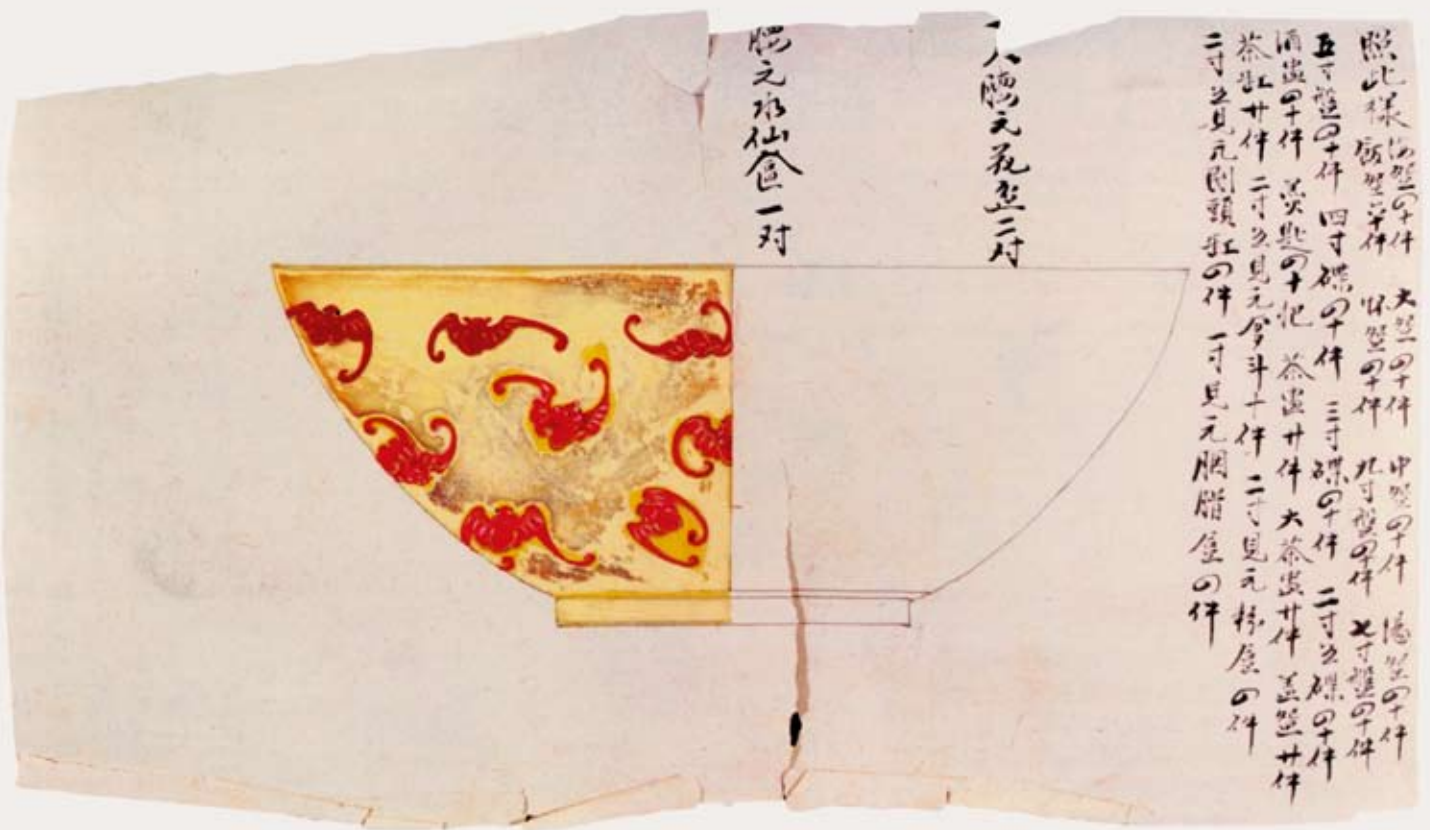 照此樣 海盌四十件 大盌四十件 中盌四十件 湯盌四十件
飯盌 件 怀盌四十件 九寸盤四十件 七寸盤四十件
五寸盤四十件 四寸碟四十件 三寸碟四十件 二寸五碟四十件
酒盅四十件 羹匙四十把 茶盅廿件 大茶盅廿件 盖盌廿件
茶缸廿件 二寸五見元 斗十件 二寸見元 盒四件
二寸五見元 頭缸四件 一寸見元胭脂盒四件
腰元花盆二对
腰元水仙盆一对